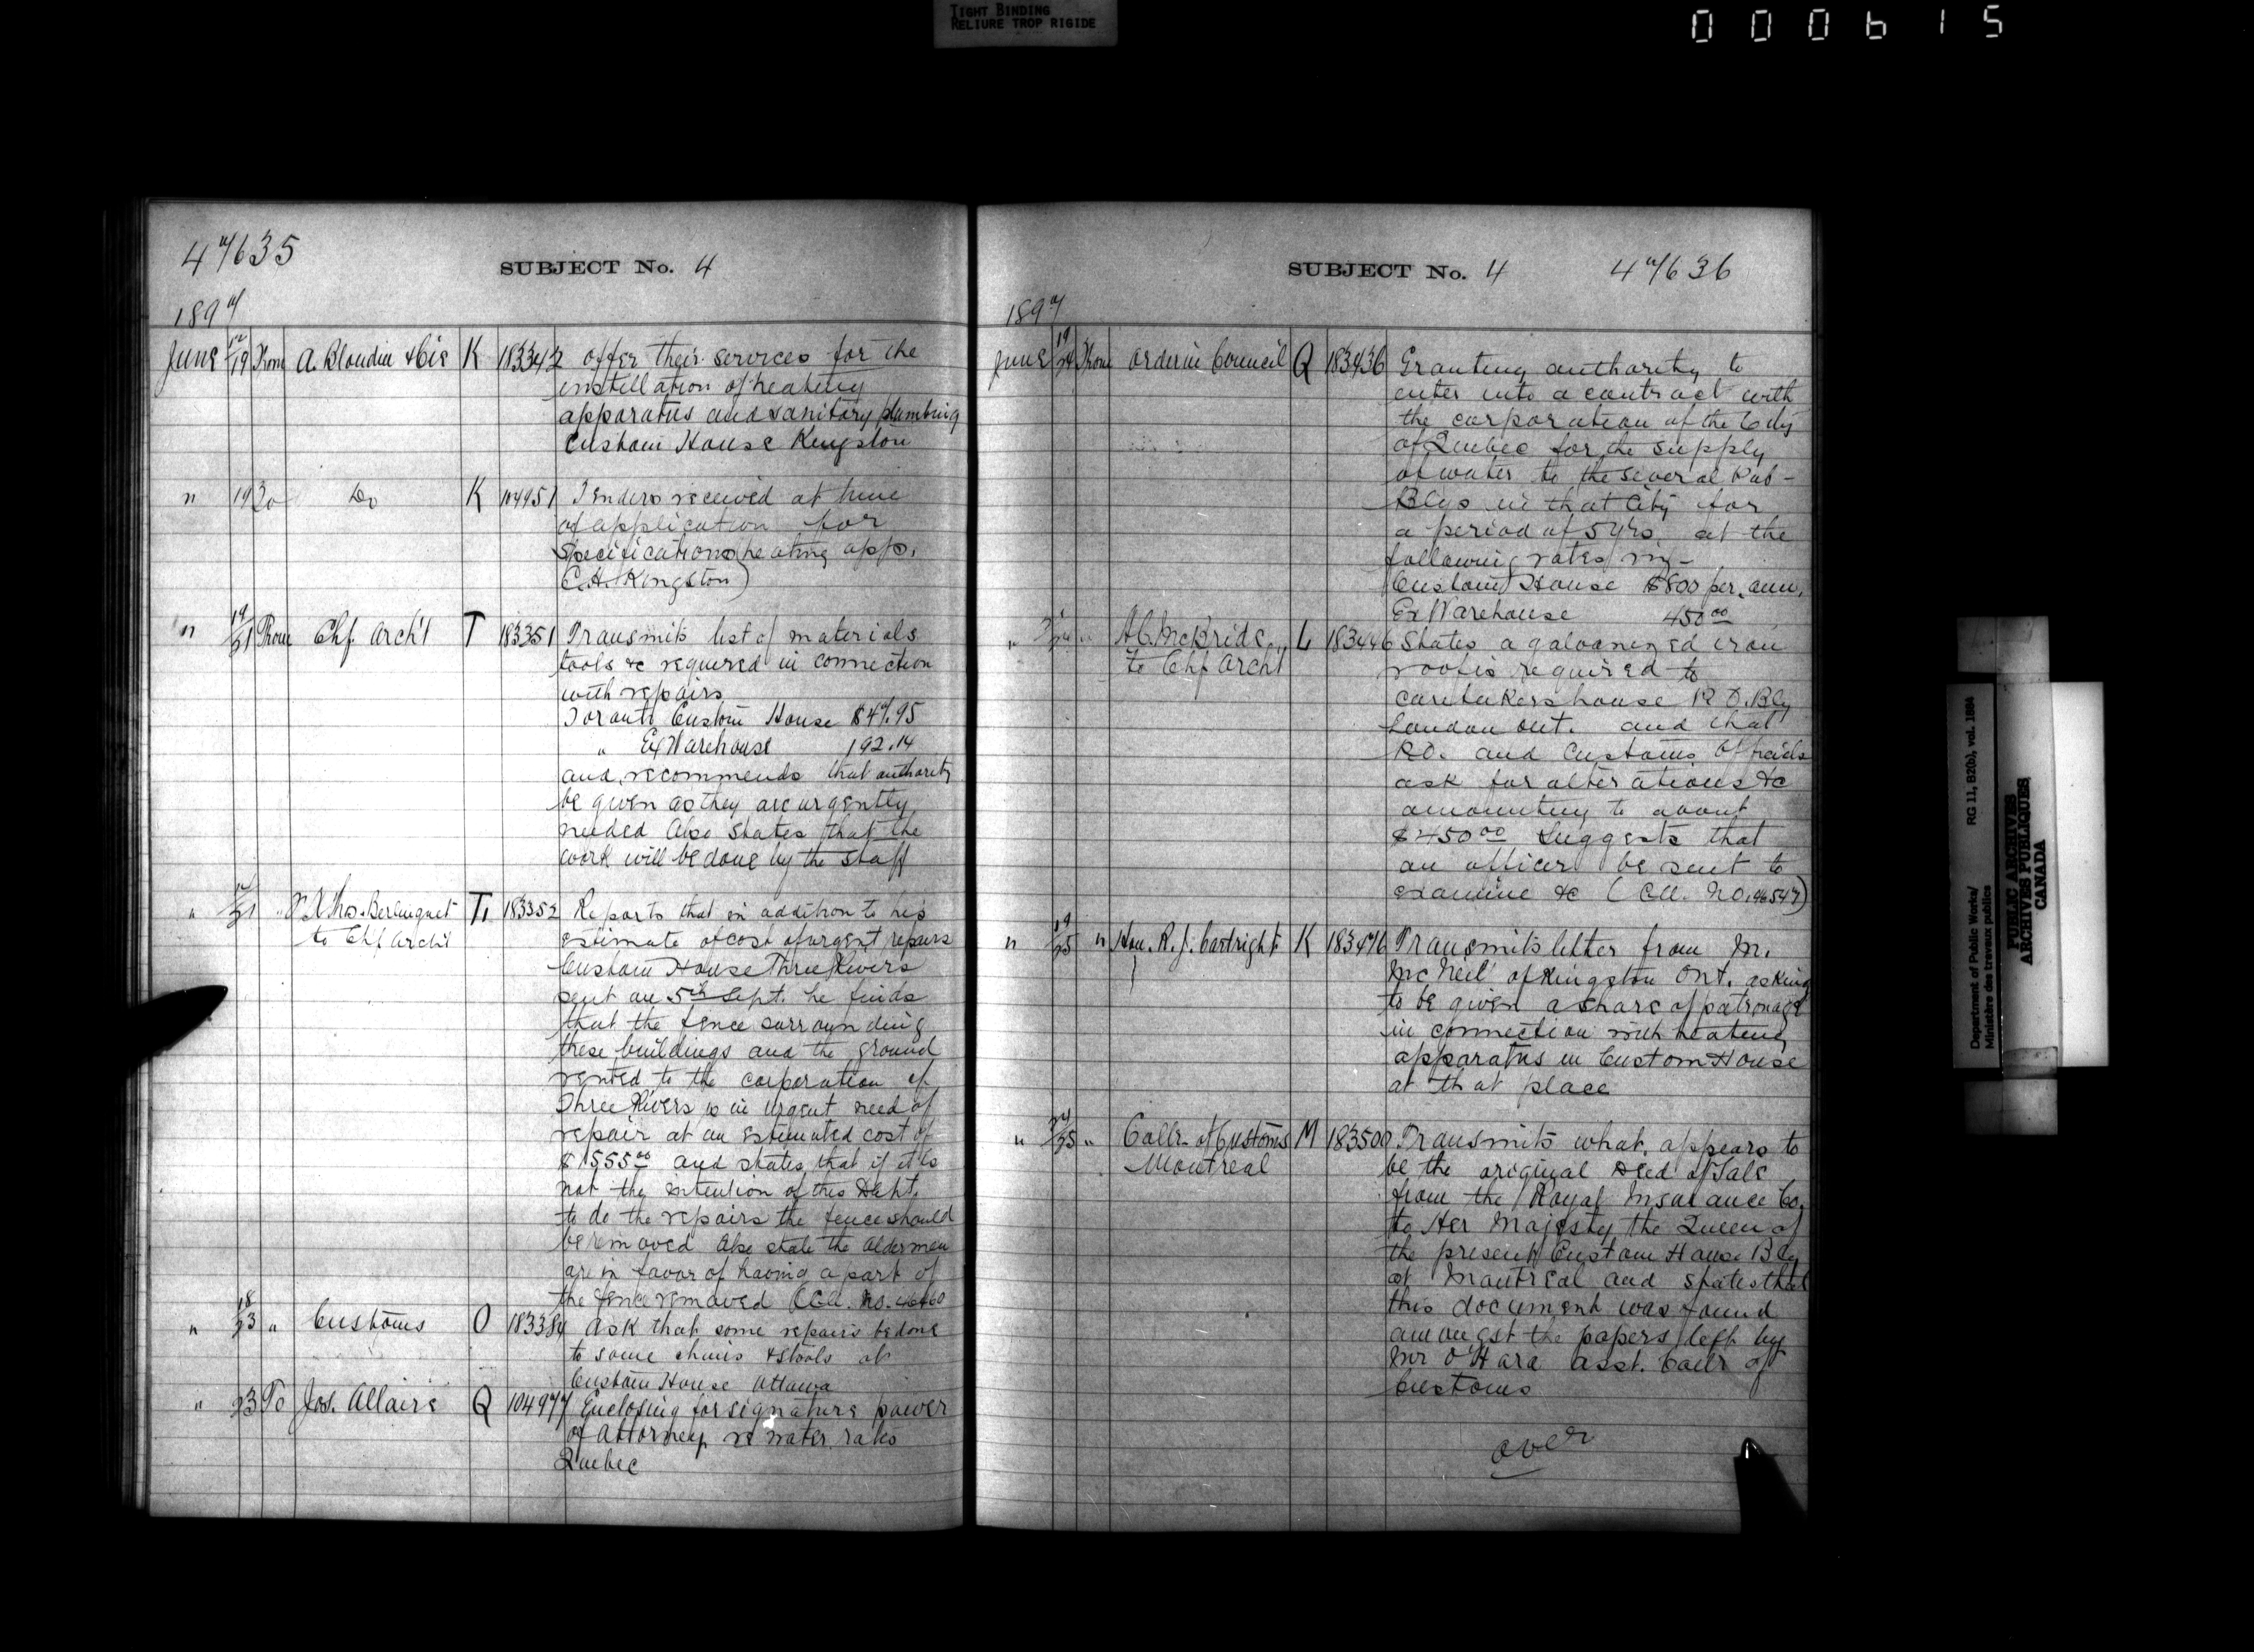 TIGHT BINDING
RELIURE TROP RIGIDE
000615
47635
SUBJECT No. 4
1897
June 17/19 From A. Blondin & Cie K 183342 Offer their services for the
installation of heating
apparatus and sanitary plumbing
Custom House Kingston
" 19 Do K 104951 Tenders received at time
of application for
specifications (heating app.
C.H. Kingston)
" 19/21 From Chf. Archt T 183351 Transmits list of materials
tools &c required in connection
with repairs
Toronto Custom House $47.95
" Ex Warehouse 192.14
and recommends that authority
be given as they are urgently
needed Also states that the
work will be done by the staff
" 21 " Berlinguet T. 183352 Reports that in addition to his
to Chf Archt estimate of cost of urgent repairs
Custom House Three Rivers
sent on 5th Sept. he finds
that the fence surrounding
these buildings and the ground
rented to the corporation of
Three Rivers is in urgent need of
repair at an estimated cost of
$1555.00 and states that if it is
not the intention of this Dept.
to do the repairs the fence should
be removed Also state the aldermen
are in favor of having a part of
the fence removed
" 18/23 " Customs O 183384 Ask that some repairs be done
to some chairs & stools at
Custom House Ottawa
" 23 To Jos. Allaire Q 104977 Enclosing for signature power
of Attorney re water rates
Quebec
SUBJECT No. 4 47636
1897
June 19/24 From Order in Council Q 183436 Granting authority to
enter into a contract with
the corporation of the City
of Quebec for the supply
of water to the several Pub-
Blgs in that City for
a period of 5 yrs. at the
following rates
Custom House $800 per. ann.
Ex Warehouse 450.00
" 24 " A.C. McBride L 183446 States a galvanized iron
to Chf Archt roof is required to
caretakers house P.O. Blg
London Ont. and that
P.O. and Customs Officials
ask for alterations &c
amounting to about
$450.00 Suggests that
an officer be sent to
examine &c (Ell. No. 46547)
" 19/25 " Hon. R. J. Cartright K 183476 Transmits letter from M.
McNeil of Kingston Ont. asking
to be given a share of patronage
in connection with heating
apparatus in Custom House
at that place
" 24/25 " Collr. of Customs M 183500 Transmits what appears to
Montreal be the original Deed of Sale
from the Royal Insurance Co.
to Her Majesty the Queen of
the present Custom House Blg
at Montreal and states that
this document was found
amongst the papers left by
Mr O'Hara asst. Collr of
Customs
over
Department of Public Works/
Ministère des travaux publics
RG 11, B2(b), vol. 1884
PUBLIC ARCHIVES
ARCHIVES PUBLIQUES
CANADA